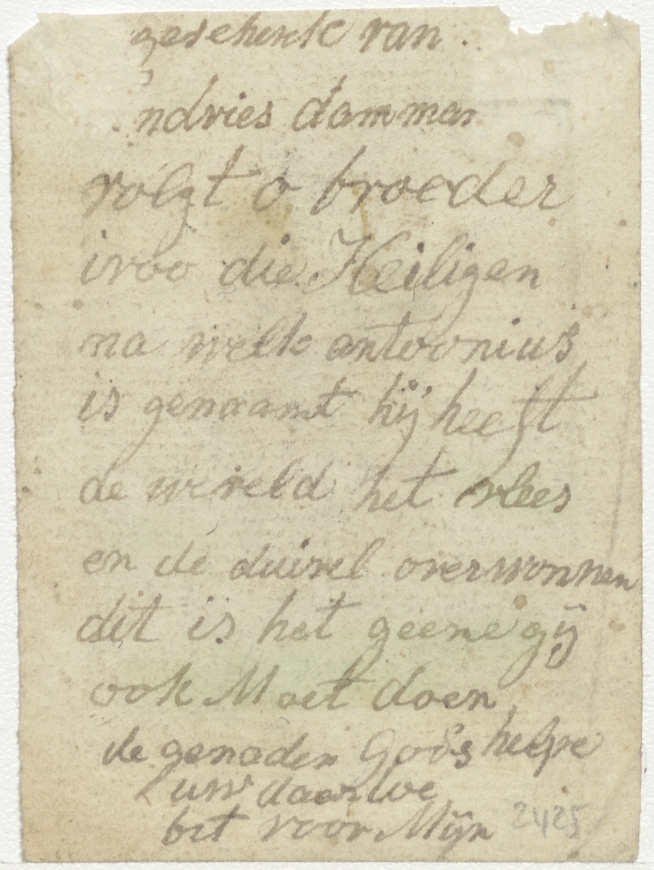 geschenk van
ndries damman
volgt o broeder
ivoo die Heiligen
na welk antoonius
is genaamt hij heeft
de wereld het vlees
en de duivel overwonnen
dit is het geene gij
ook Moet doen
de genaden Gods helpe
uw daartoe
bit voor Mijn 2425